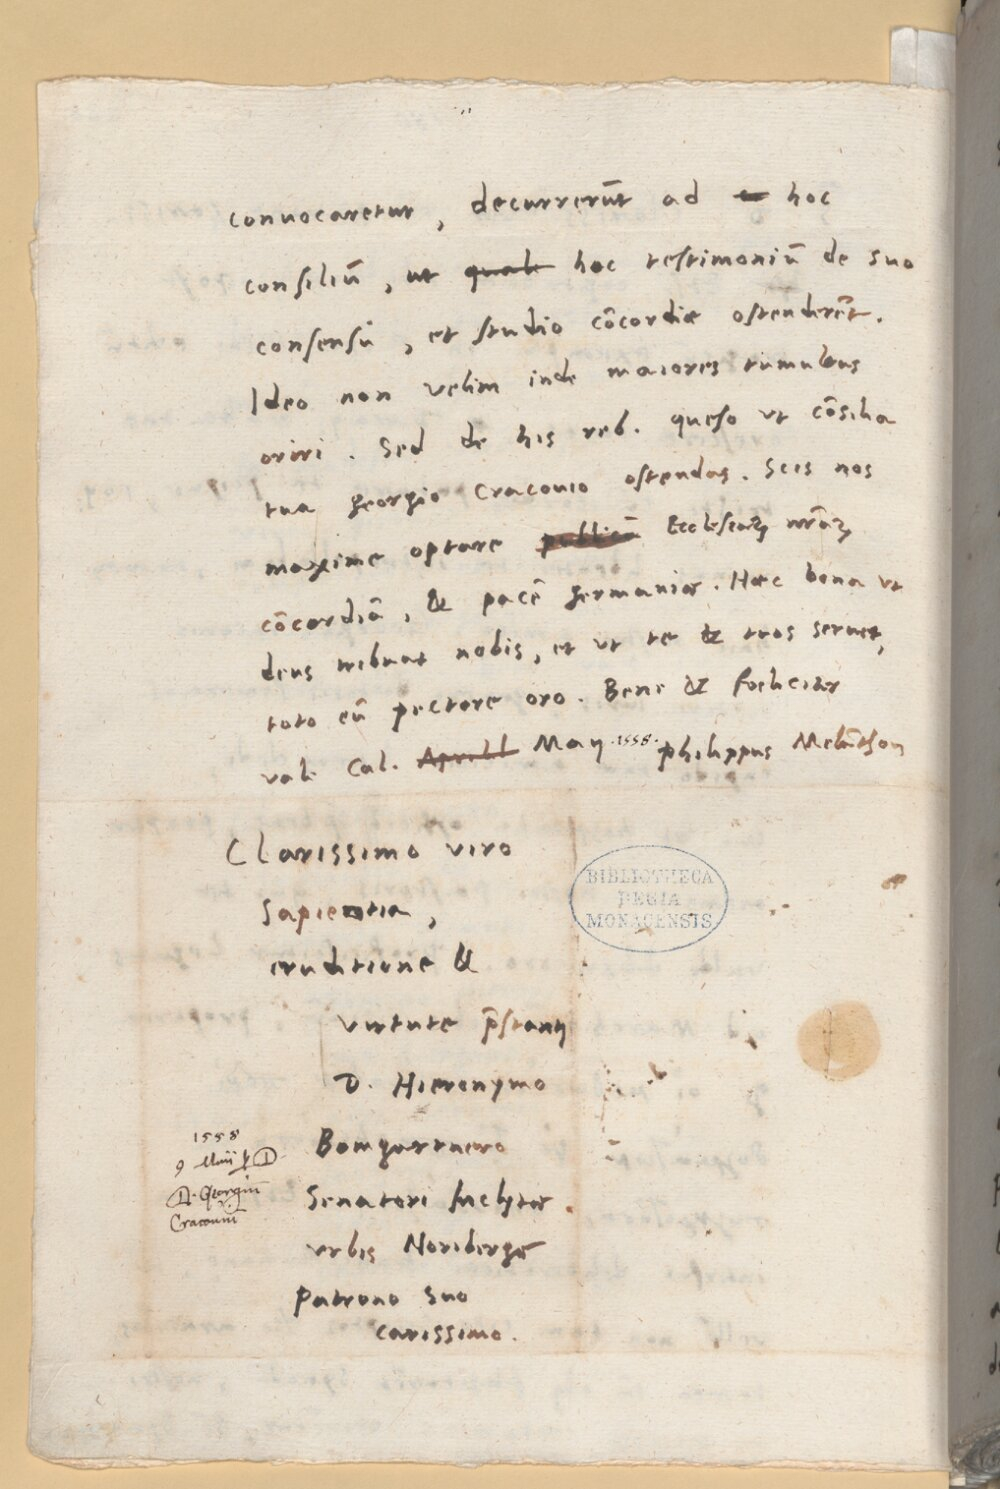 conuocaretur, decurrerūt ad hoc
consiliū, ut quale hoc testimoniū de suo
consensu, et studio cōcordiæ ostenderēt.
Ideo non velim inde maiores tumultus
oriri. Sed de his reb. queso vt cōsilia
tua georgio Craconio ostendas. Scis nos
maxime optare publicā Ecclesiaꝝ nr̄aꝝ
cōcordiā, & pacē germaniæ. Hæc bona vt
deus tribuat nobis, et vt te & tuos seruet,
toto eū pectore oro. Bene & foeliciter
vale Cal. Aprill Maij .1558. philippus Melāthon
Clarissimo viro
sapientia,
eruditione &
virtute p̄stanti
D. Hieronymo
Bomgartnero
Senatori Inclytæ
vrbis Noribergæ
patrono suo
carissimo.
BIBLIOTHECA
REGIA
MONACENSIS
1558
9 Maii p D
D. Georgiū
Craconiū